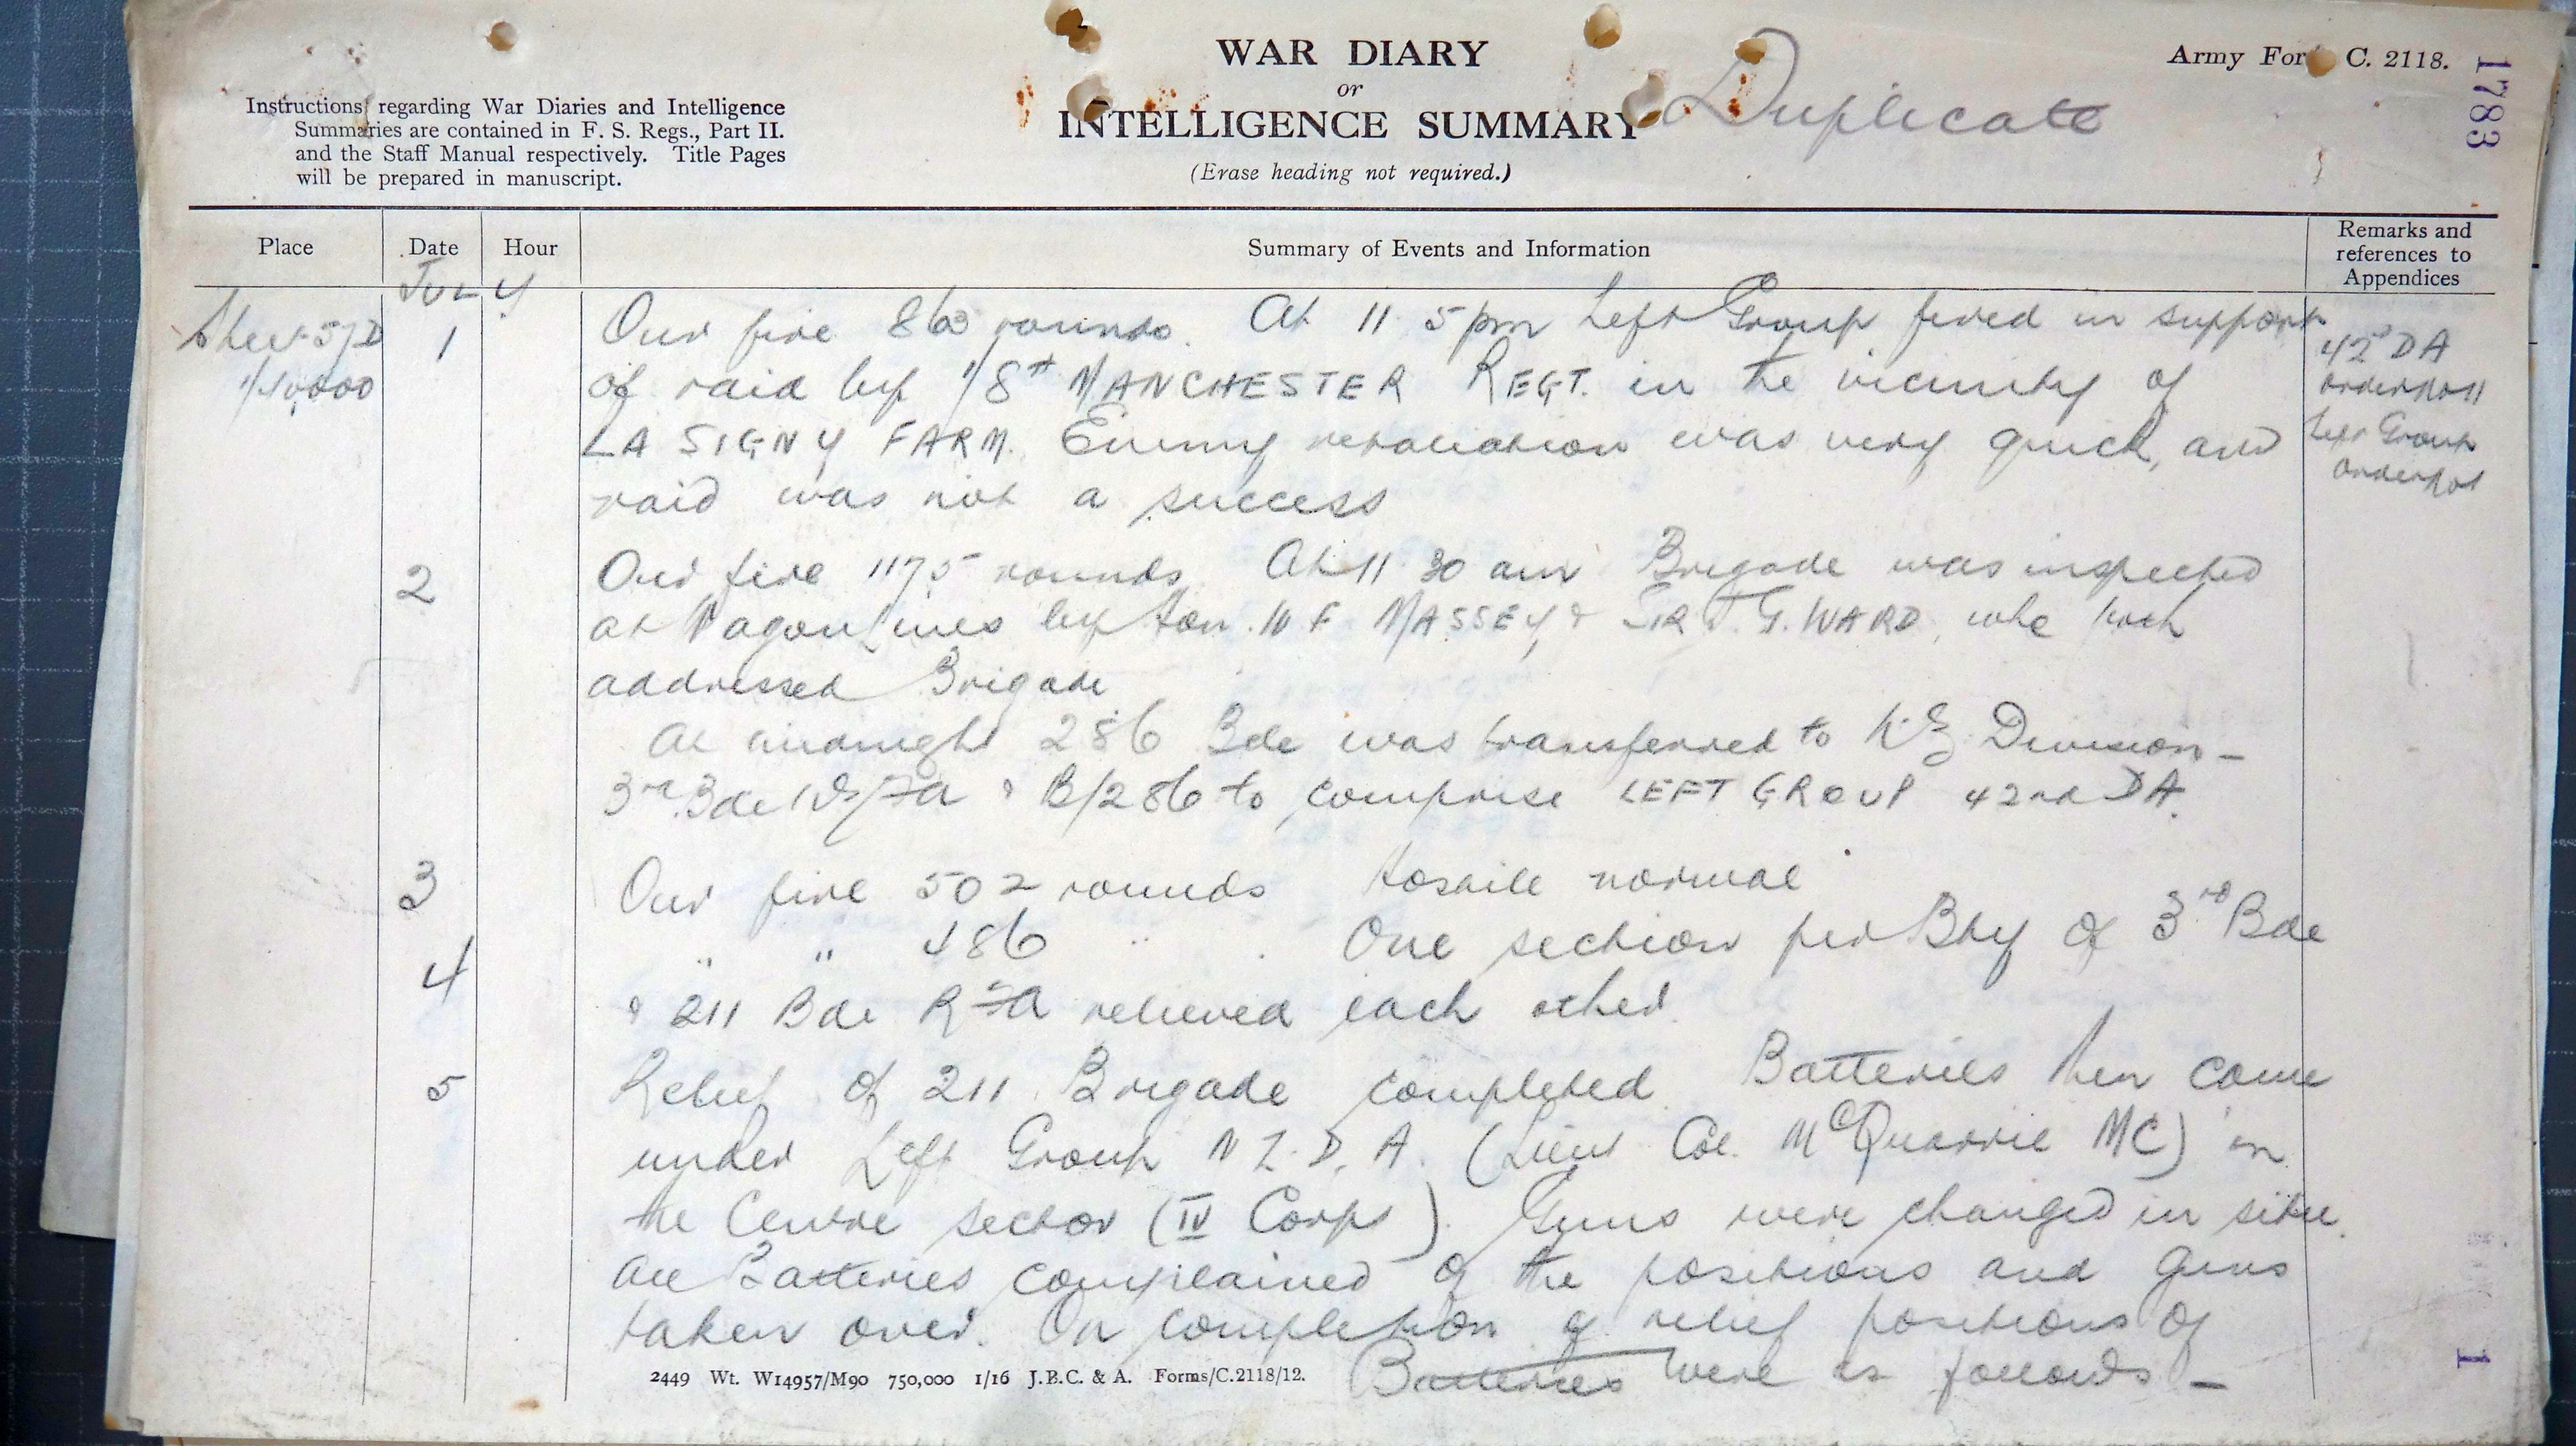 WAR DIARY
or
INTELLIGENCE SUMMARY
(Erase heading not required.)
Duplicate
Army For C. 2118.
1783
Instructions regarding War Diaries and Intelligence
Summaries are contained in F. S. Regs., Part II.
and the Staff Manual respectively. Title Pages
will be prepared in manuscript.
Place
Date
Hour
Summary of Events and Information
Remarks and
references to
Appendices
JULY
Sheet 57D
1/40,000
1
Our fire 860 rounds. At 11 5pm Left Group fired in support
of raid by 1/8th MANCHESTER REGT. in the vicinity of
LA SIGNY FARM. Enemy retaliation was very quick, and
raid was not a success
42nd DA
order No 11
Left Group
order No 1
2
Our fire 1175 rounds At 11 30 am Brigade was inspected
at Wagon Lines by Hon. W F MASSEY & SIR J. G. WARD, who both
addressed Brigade
At midnight 286 Bde was transferred to NZ Division –
3rd Bde NZFA & B/286 to comprise LEFT GROUP 42nd DA.
3
Our fire 502 rounds Hostile normal
4
" " 486 " . One section per Bty of 3rd Bde
& 211 Bde RFA relieved each other
5
Relief of 211 Brigade completed. Batteries then came
under Left Group N Z. D. A. (Lieut Col. McQuarrie MC) in
the Centre sector (IV Corps). Guns were changed in situ.
All Batteries complained of the positions and guns
taken over. On completion of relief positions of
Batteries were as follows –
2449 Wt. W14957/M90 750,000 1/16 J.B.C. & A. Forms/C.2118/12.
1